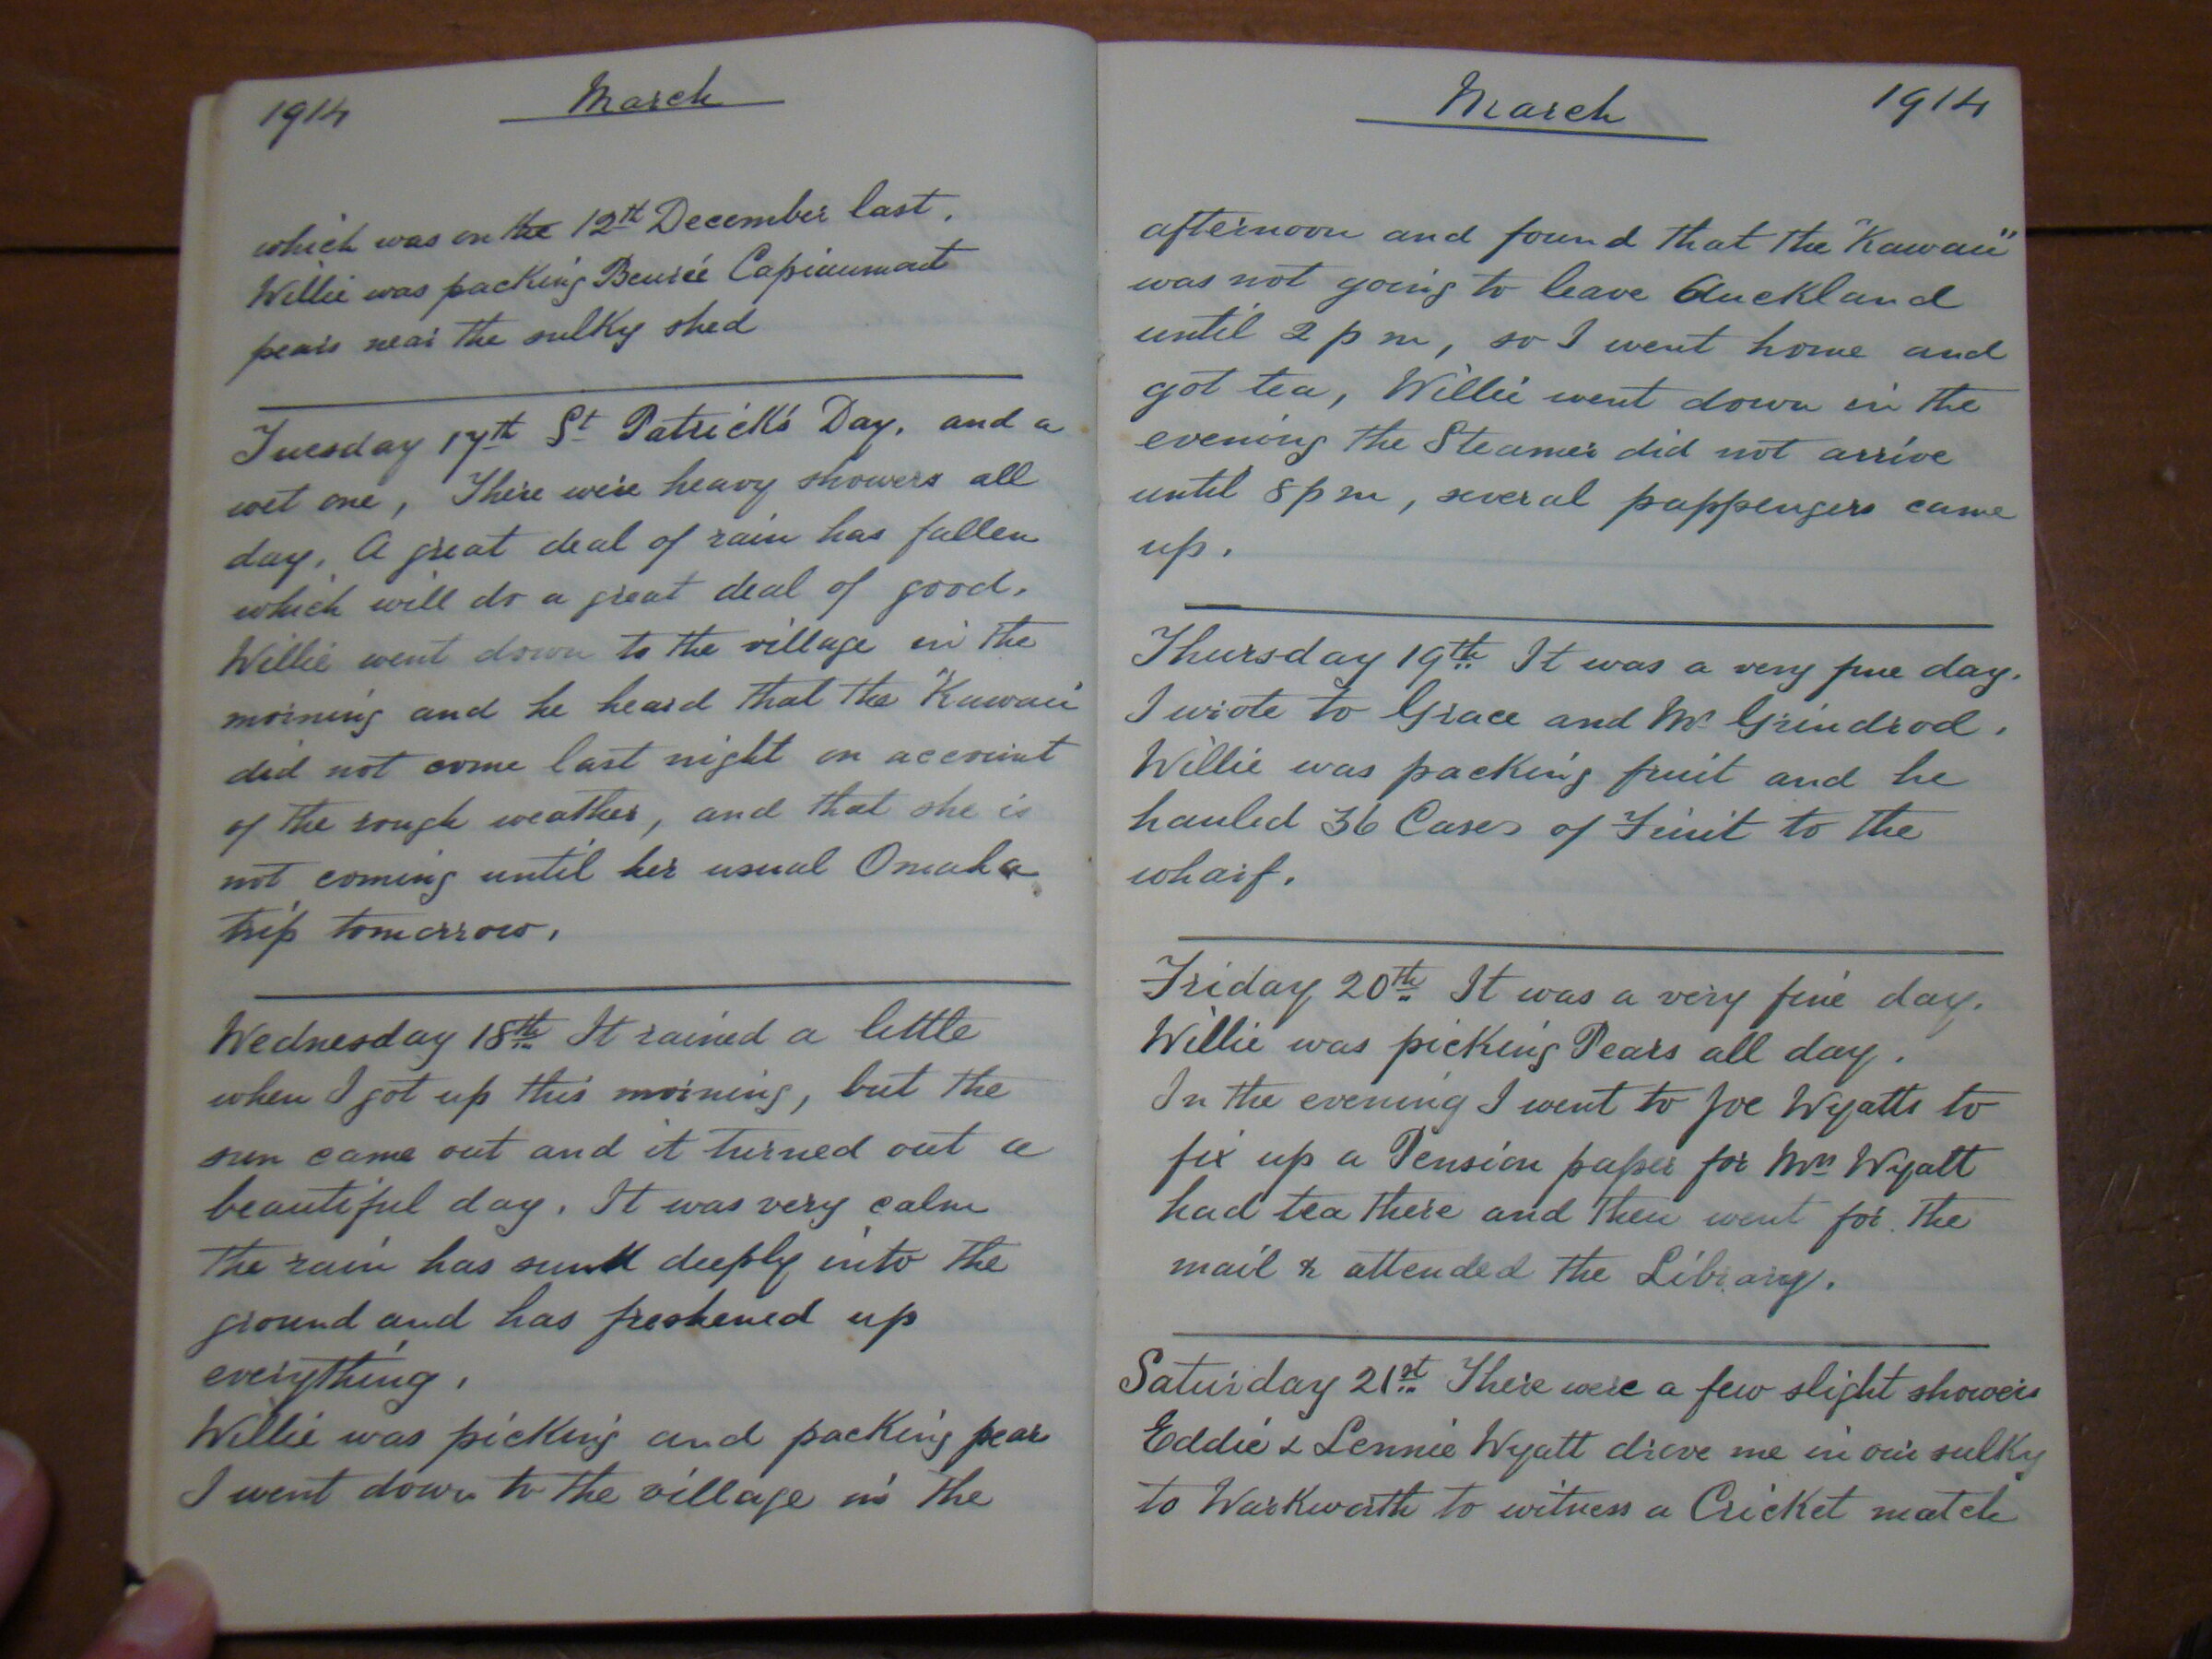 1914
March
which was on the 12th December last.
Willie was packing Beurré Capiaumont
pears near the sulky shed
Tuesday 17th St Patrick's Day, and a
wet one, There were heavy showers all
day. A great deal of rain has fallen
which will do a great deal of good.
Willie went down to the village in the
morning and he heard that the "Kawau"
did not come last night on account
of the rough weather, and that she is
not coming until her usual Omaha
trip tomorrow.
Wednesday 18th It rained a little
when I got up this morning, but the
sun came out and it turned out a
beautiful day. It was very calm
the rain has sunk deeply into the
ground and has freshened up
everything.
Willie was picking and packing pears
I went down to the village in the
March
1914
afternoon and found that the "Kawau"
was not going to leave Auckland
until 2 pm, so I went home and
got tea, Willie went down in the
evening the Steamer did not arrive
until 8 pm, several passengers came
up.
Thursday 19th It was a very fine day.
I wrote to Grace and Mr Grindrod.
Willie was packing fruit and he
hauled 36 Cases of Fruit to the
wharf.
Friday 20th It was a very fine day.
Willie was picking Pears all day.
In the evening I went to Joe Wyatts to
fix up a Pension paper for Mrs Wyatt
had tea there and then went for the
mail & attended the Library.
Saturday 21st There were a few slight showers
Eddie & Lennie Wyatt drove me in our sulky
to Warkworth to witness a Cricket match